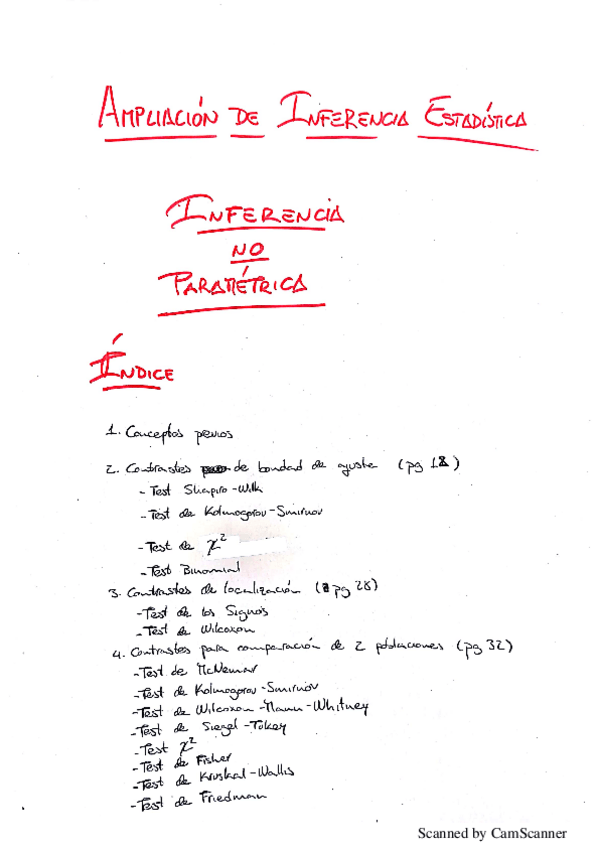 AMPLIACIÓN DE INFERENCIA ESTADÍSTICA
INFERENCIA
NO
PARAMÉTRICA
ÍNDICE
1. Conceptos pevios
2. Contrastes de bondad de ajuste (pg 18)
- Test Shapiro-Wilk
- Test de Kolmogorov-Smirnov
- Test de χ²
- Test Binomial
3. Contrastes de localización (pg 28)
- Test de los Signos
- Test de Wilcoxon
4. Contrastes para comparación de 2 poblaciones (pg 32)
- Test de McNemar
- Test de Kolmogorov-Smirnov
- Test de Wilcoxon-Mann-Whitney
- Test de Siegel-Tukey
- Test χ²
- Test de Fisher
- Test de Kruskal-Wallis
- Test de Friedman
Scanned by CamScanner